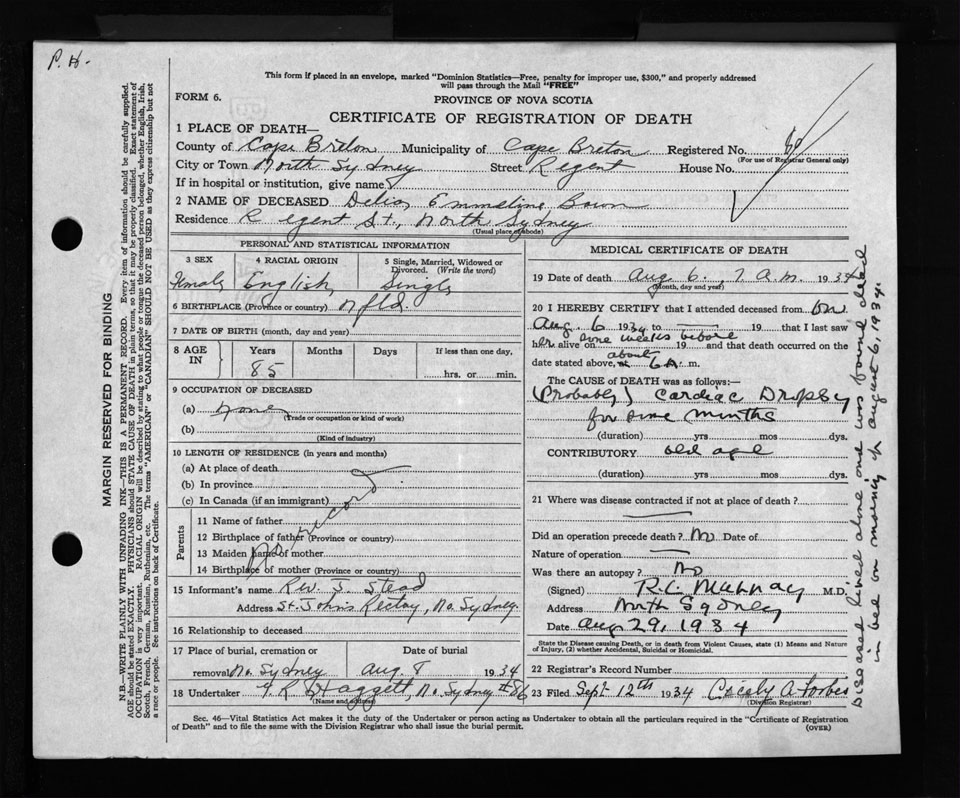 P. H.
This form if placed in an envelope, marked "Dominion Statistics—Free, penalty for improper use, $300," and properly addressed
will pass through the Mail "FREE"
FORM 6.
PROVINCE OF NOVA SCOTIA
CERTIFICATE OF REGISTRATION OF DEATH
1 PLACE OF DEATH—
County of Cape Breton Municipality of Cape Breton Registered No.
(For use of Registrar General only)
City or Town North Sydney Street Regent House No.
If in hospital or institution, give name
2 NAME OF DECEASED Emmeline
Residence Regent St., North Sydney
(Usual place of abode)
PERSONAL AND STATISTICAL INFORMATION
3 SEX
Female
4 RACIAL ORIGIN
English
5 Single, Married, Widowed or Divorced. (Write the word)
Single
6 BIRTHPLACE (Province or country) Nfld
7 DATE OF BIRTH (month, day and year)
8 AGE IN Years Months Days If less than one day,
85 hrs. or min.
9 OCCUPATION OF DECEASED
(a) None
(Trade or occupation or kind of work)
(b)
(Kind of industry)
10 LENGTH OF RESIDENCE (in years and months)
(a) At place of death
(b) In province
(c) In Canada (if an immigrant)
Parents
11 Name of father
12 Birthplace of father (Province or country)
13 Maiden name of mother
14 Birthplace of mother (Province or country)
no record
15 Informant's name Rev. J. Stead
Address St. John's Rectory, No. Sydney.
16 Relationship to deceased
17 Place of burial, cremation or Date of burial
removal No. Sydney Aug 8 1934
18 Undertaker Haggett, No. Sydney #86
(Name and address)
MEDICAL CERTIFICATE OF DEATH
19 Date of death Aug 6. 7 a.m. 1934
(Month, day and year)
20 I HEREBY CERTIFY that I attended deceased from on
Aug. 6 1934 to 19 that I last saw
some weeks before
her alive on 19 and that death occurred on the
date stated above, at about 6 A. m.
The CAUSE OF DEATH was as follows:—
(Probably) Cardiac Dropsy
for some months
(duration) yrs mos dys.
CONTRIBUTORY old age
(duration) yrs mos dys.
21 Where was disease contracted if not at place of death?
Did an operation precede death? No Date of
Nature of operation
Was there an autopsy? No
(Signed) M.D.
Address North Sydney
Date Aug 29, 1934
State the Disease causing Death, or in death from Violent Causes, state (1) Means and Nature
of Injury, (2) whether Accidental, Suicidal or Homicidal.
22 Registrar's Record Number
23 Filed Sept 12th 1934 Cecely A. Forbes
(Division Registrar)
Sec. 46—Vital Statistics Act makes it the duty of the Undertaker or person acting as Undertaker to obtain all the particulars required in the "Certificate of Registration
of Death" and to file the same with the Division Registrar who shall issue the burial permit.
(OVER)
MARGIN RESERVED FOR BINDING
N.B.—WRITE PLAINLY WITH UNFADING INK—THIS IS A PERMANENT RECORD. Every item of information should be carefully supplied.
AGE should be stated EXACTLY. PHYSICIANS should STATE CAUSE OF DEATH in plain terms, so that it may be properly classified. Exact statement of
OCCUPATION is very important. RACIAL ORIGIN will be described by stating to what people or tongue the deceased person belonged, whether English, Irish,
Scotch, French, German, Russian, Ruthenian, etc. The terms "AMERICAN" or "CANADIAN" SHOULD NOT BE USED as they express citizenship but not
a race or people. See instructions on back of Certificate.
Deceased lived alone and was found dead
in bed on morning of August 6, 1934.